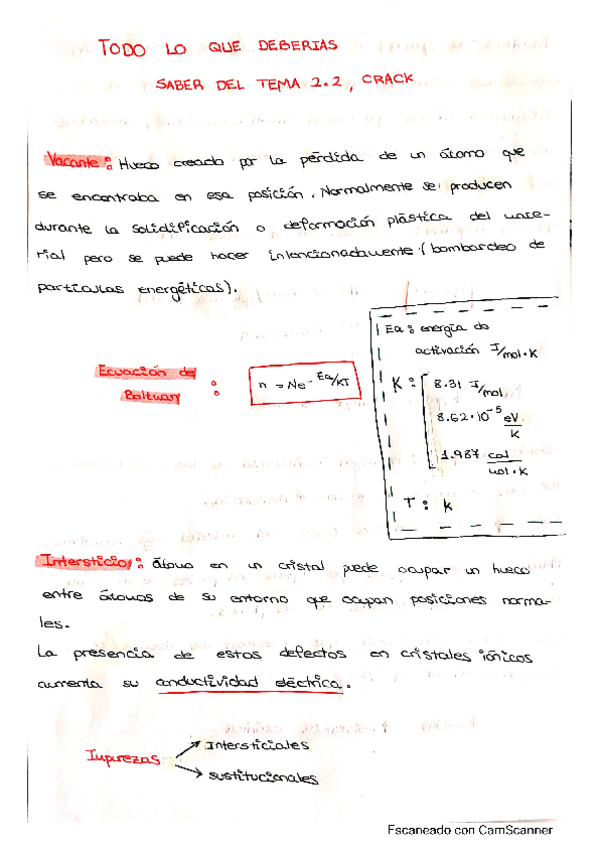 TODO LO QUE DEBERIAS
SABER DEL TEMA 2.2, CRACK
Vacante: Hueco creado por la pérdida de un átomo que
se encontraba en esa posición. Normalmente se producen
durante la solidificación o deformación plástica del mate-
rial pero se puede hacer intencionadamente (bombardeo de
partículas energéticas).
Ecuación de
Boltman
:
n = Ne^-Ea/KT
Ea: energía de
activación J/mol·K
K: 8.31 J/mol
8.62·10^-5 eV/K
1.987 cal/mol·K
T: K
Intersticio: átomo en un cristal puede ocupar un hueco
entre átomos de su entorno que ocupan posiciones norma-
les.
La presencia de estos defectos en cristales iónicos
aumenta su conductividad eléctrica.
Impurezas
Intersticiales
sustitucionales
Escaneado con CamScanner